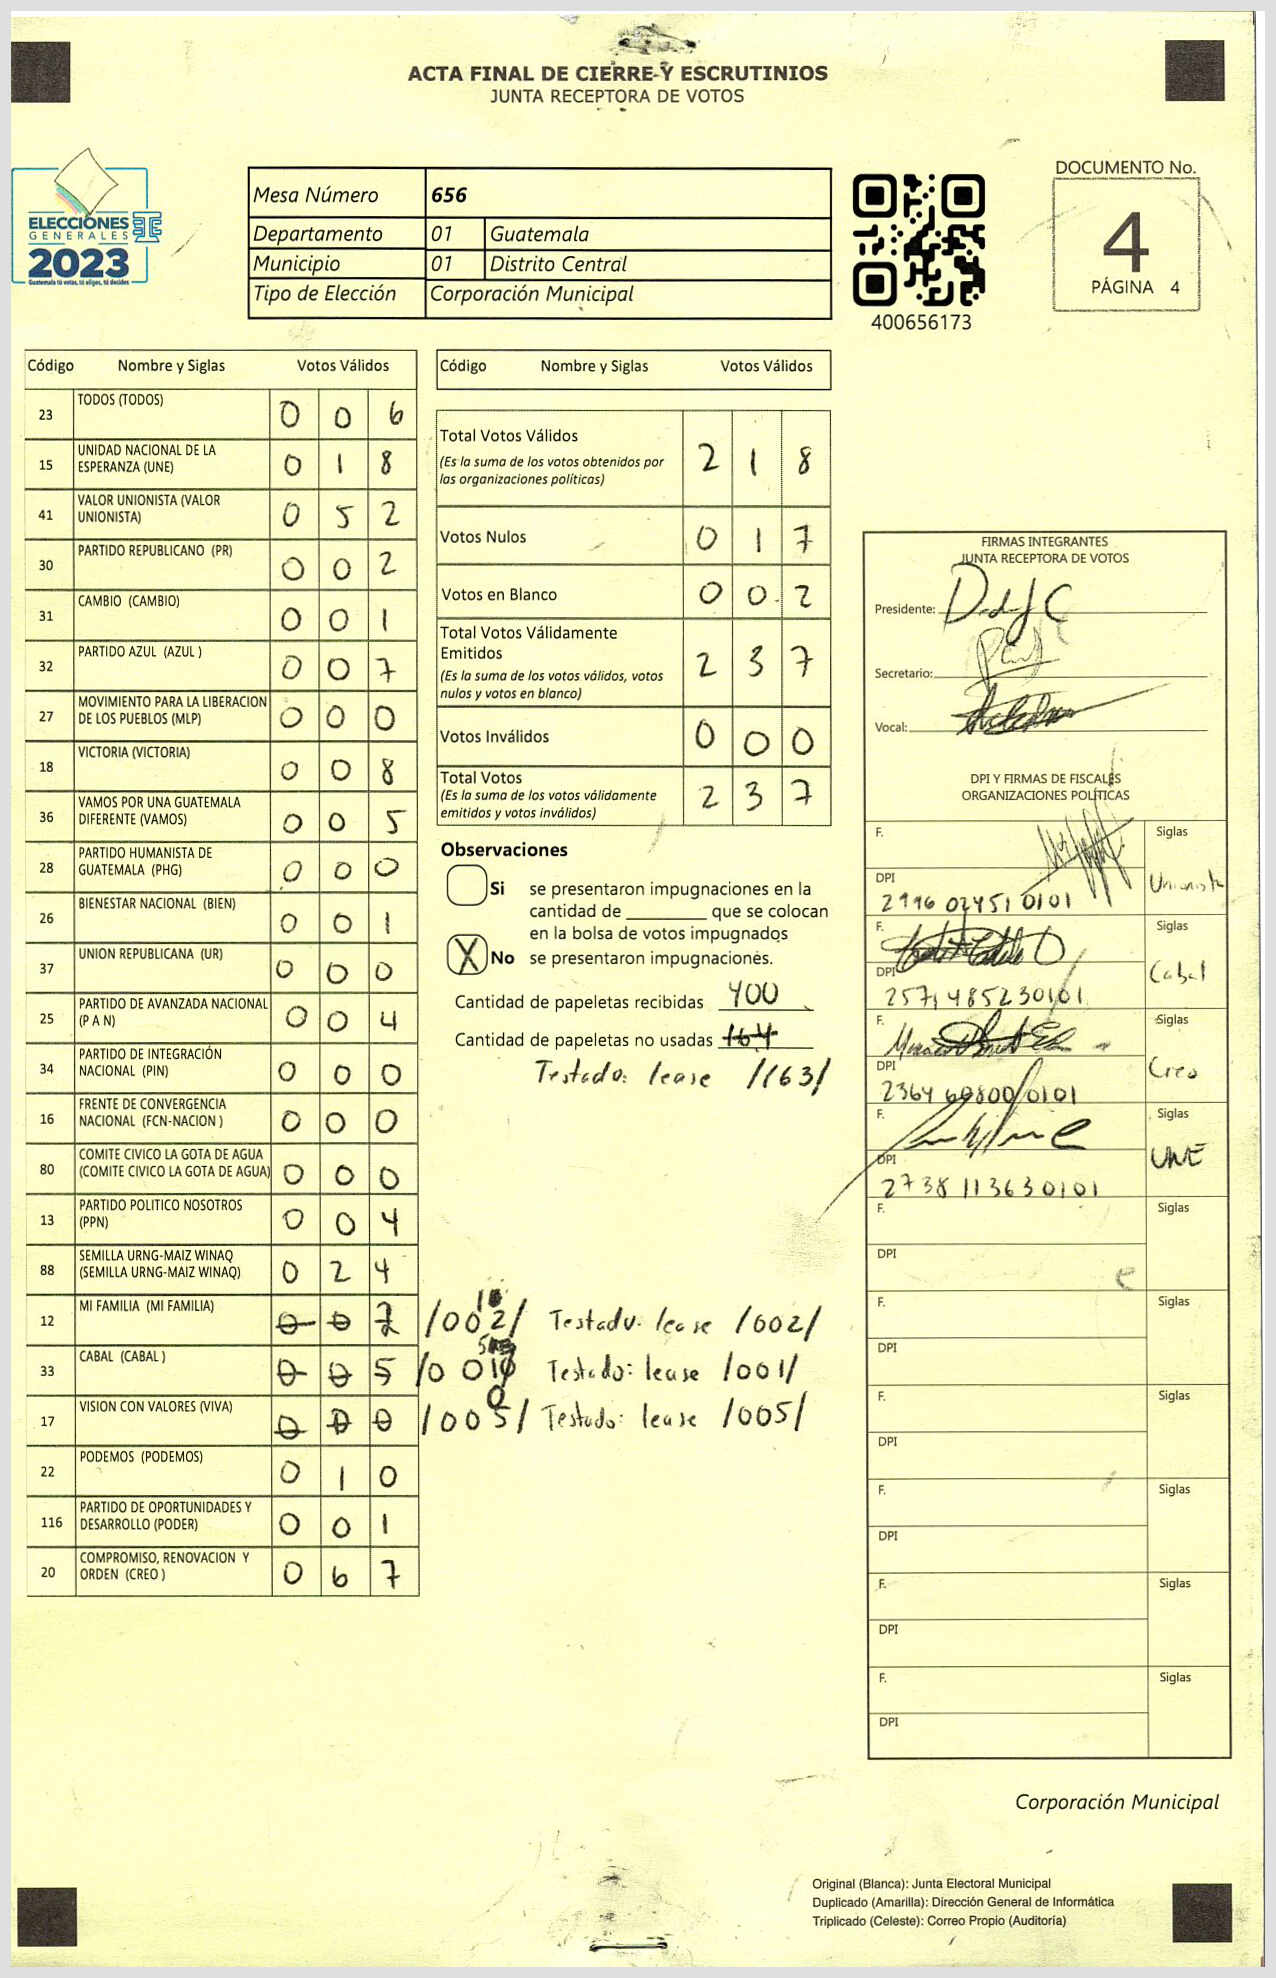 ACTA FINAL DE CIERRE Y ESCRUTINIOS
JUNTA RECEPTORA DE VOTOS
ELECCIONES
GENERALES
2023
Guatemala tú votas, tú eliges, tú decides
Mesa Número 656
Departamento 01 Guatemala
Municipio 01 Distrito Central
Tipo de Elección Corporación Municipal
400656173
DOCUMENTO No.
4
PÁGINA 4
Código Nombre y Siglas Votos Válidos
23 TODOS (TODOS) 0 0 6
15 UNIDAD NACIONAL DE LA ESPERANZA (UNE) 0 1 8
41 VALOR UNIONISTA (VALOR UNIONISTA) 0 5 2
30 PARTIDO REPUBLICANO (PR) 0 0 2
31 CAMBIO (CAMBIO) 0 0 1
32 PARTIDO AZUL (AZUL ) 0 0 7
27 MOVIMIENTO PARA LA LIBERACION DE LOS PUEBLOS (MLP) 0 0 0
18 VICTORIA (VICTORIA) 0 0 8
36 VAMOS POR UNA GUATEMALA DIFERENTE (VAMOS) 0 0 5
28 PARTIDO HUMANISTA DE GUATEMALA (PHG) 0 0 0
26 BIENESTAR NACIONAL (BIEN) 0 0 1
37 UNION REPUBLICANA (UR) 0 0 0
25 PARTIDO DE AVANZADA NACIONAL (P A N) 0 0 4
34 PARTIDO DE INTEGRACIÓN NACIONAL (PIN) 0 0 0
16 FRENTE DE CONVERGENCIA NACIONAL (FCN-NACION ) 0 0 0
80 COMITE CIVICO LA GOTA DE AGUA (COMITE CIVICO LA GOTA DE AGUA) 0 0 0
13 PARTIDO POLITICO NOSOTROS (PPN) 0 0 4
88 SEMILLA URNG-MAIZ WINAQ (SEMILLA URNG-MAIZ WINAQ) 0 2 4
12 MI FAMILIA (MI FAMILIA) 0 0 /002/ Testado: lease /002/
33 CABAL (CABAL ) 0 0 5 Testado: lease /001/
17 VISION CON VALORES (VIVA) 0 0 0 /005/ Testado: lease /005/
22 PODEMOS (PODEMOS) 0 1 0
116 PARTIDO DE OPORTUNIDADES Y DESARROLLO (PODER) 0 0 1
20 COMPROMISO, RENOVACION Y ORDEN (CREO ) 0 6 7
Código Nombre y Siglas Votos Válidos
Total Votos Válidos 2 1 8
(Es la suma de los votos obtenidos por
las organizaciones políticas)
Votos Nulos 0 1 7
Votos en Blanco 0 0 2
Total Votos Válidamente
Emitidos 2 3 7
(Es la suma de los votos válidos, votos
nulos y votos en blanco)
Votos Inválidos 0 0 0
Total Votos 2 3 7
(Es la suma de los votos válidamente
emitidos y votos inválidos)
Observaciones
Si se presentaron impugnaciones en la
cantidad de ________ que se colocan
en la bolsa de votos impugnados
X No se presentaron impugnaciones.
Cantidad de papeletas recibidas 400
Cantidad de papeletas no usadas 164
Testado: lease /163/
FIRMAS INTEGRANTES
JUNTA RECEPTORA DE VOTOS
Presidente:
Secretario:
Vocal:
DPI Y FIRMAS DE FISCALES
ORGANIZACIONES POLÍTICAS
F. Siglas
DPI Unionista
2996 02451 0101
F. Siglas
DPI Cabal
2571 48523 0101
F. Siglas
DPI Creo
2364 60800 0101
F. Siglas
DPI UNE
2738 11363 0101
F. Siglas
DPI
F. Siglas
DPI
F. Siglas
DPI
F. Siglas
DPI
F. Siglas
DPI
F. Siglas
DPI
Corporación Municipal
Original (Blanca): Junta Electoral Municipal
Duplicado (Amarilla): Dirección General de Informática
Triplicado (Celeste): Correo Propio (Auditoría)